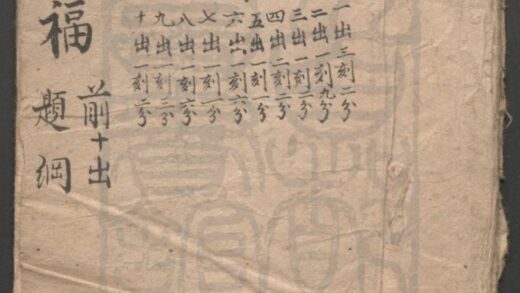 一出三刻二分
二出一刻九分
三出一刻二分
四出二刻二分
五出一刻一分
六出一刻六分
七出一刻一分
八出一刻六分
九出一刻二分
十出一刻二分
福
前十出
題綱